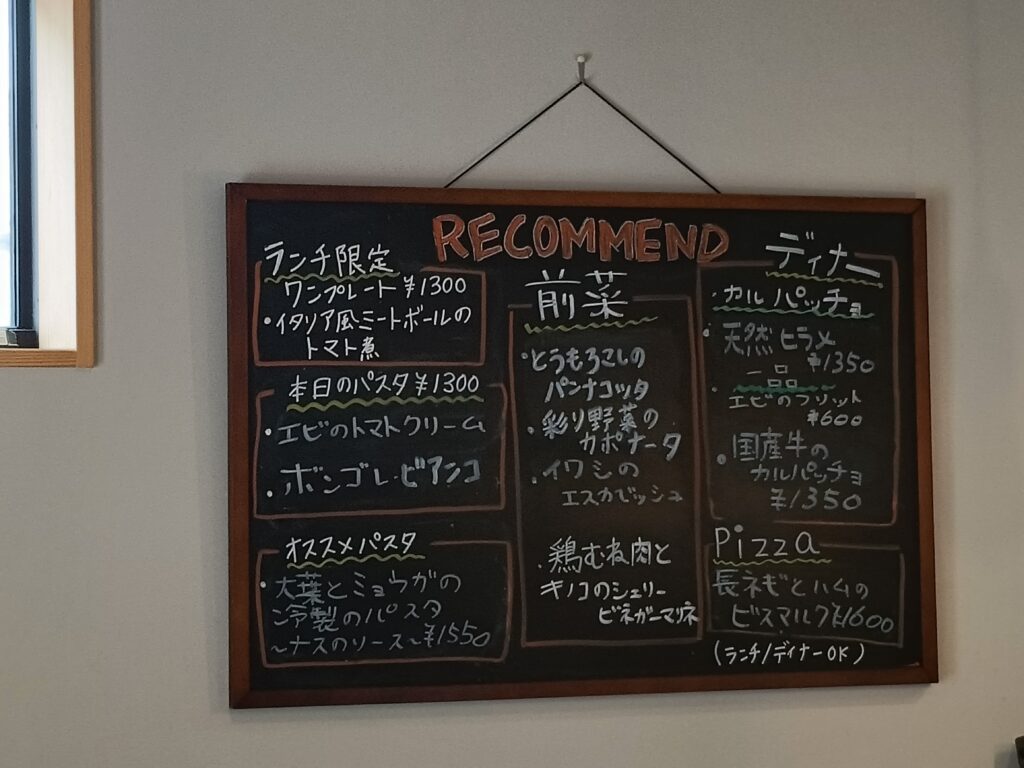 RECOMMEND
ランチ限定
ワンプレート ¥1300
・イタリア風ミートボールの
トマト煮
本日のパスタ ¥1300
・エビのトマトクリーム
・ボンゴレ・ビアンコ
オススメパスタ
・大葉とミョウガの
冷製のパスタ
〜ナスのソース〜¥1550
前菜
・とうもろこしの
パンナコッタ
・彩り野菜の
カポナータ
・イワシの
エスカベッシュ
・鶏むね肉と
キノコのシェリー
ビネガーマリネ
ディナー
・カルパッチョ
・天然ヒラメ
¥1350
・一品
エビのフリット
¥600
・国産牛の
カルパッチョ
¥1350
Pizza
長ネギとハムの
ビスマルク¥1600
(ランチ/ディナーOK)